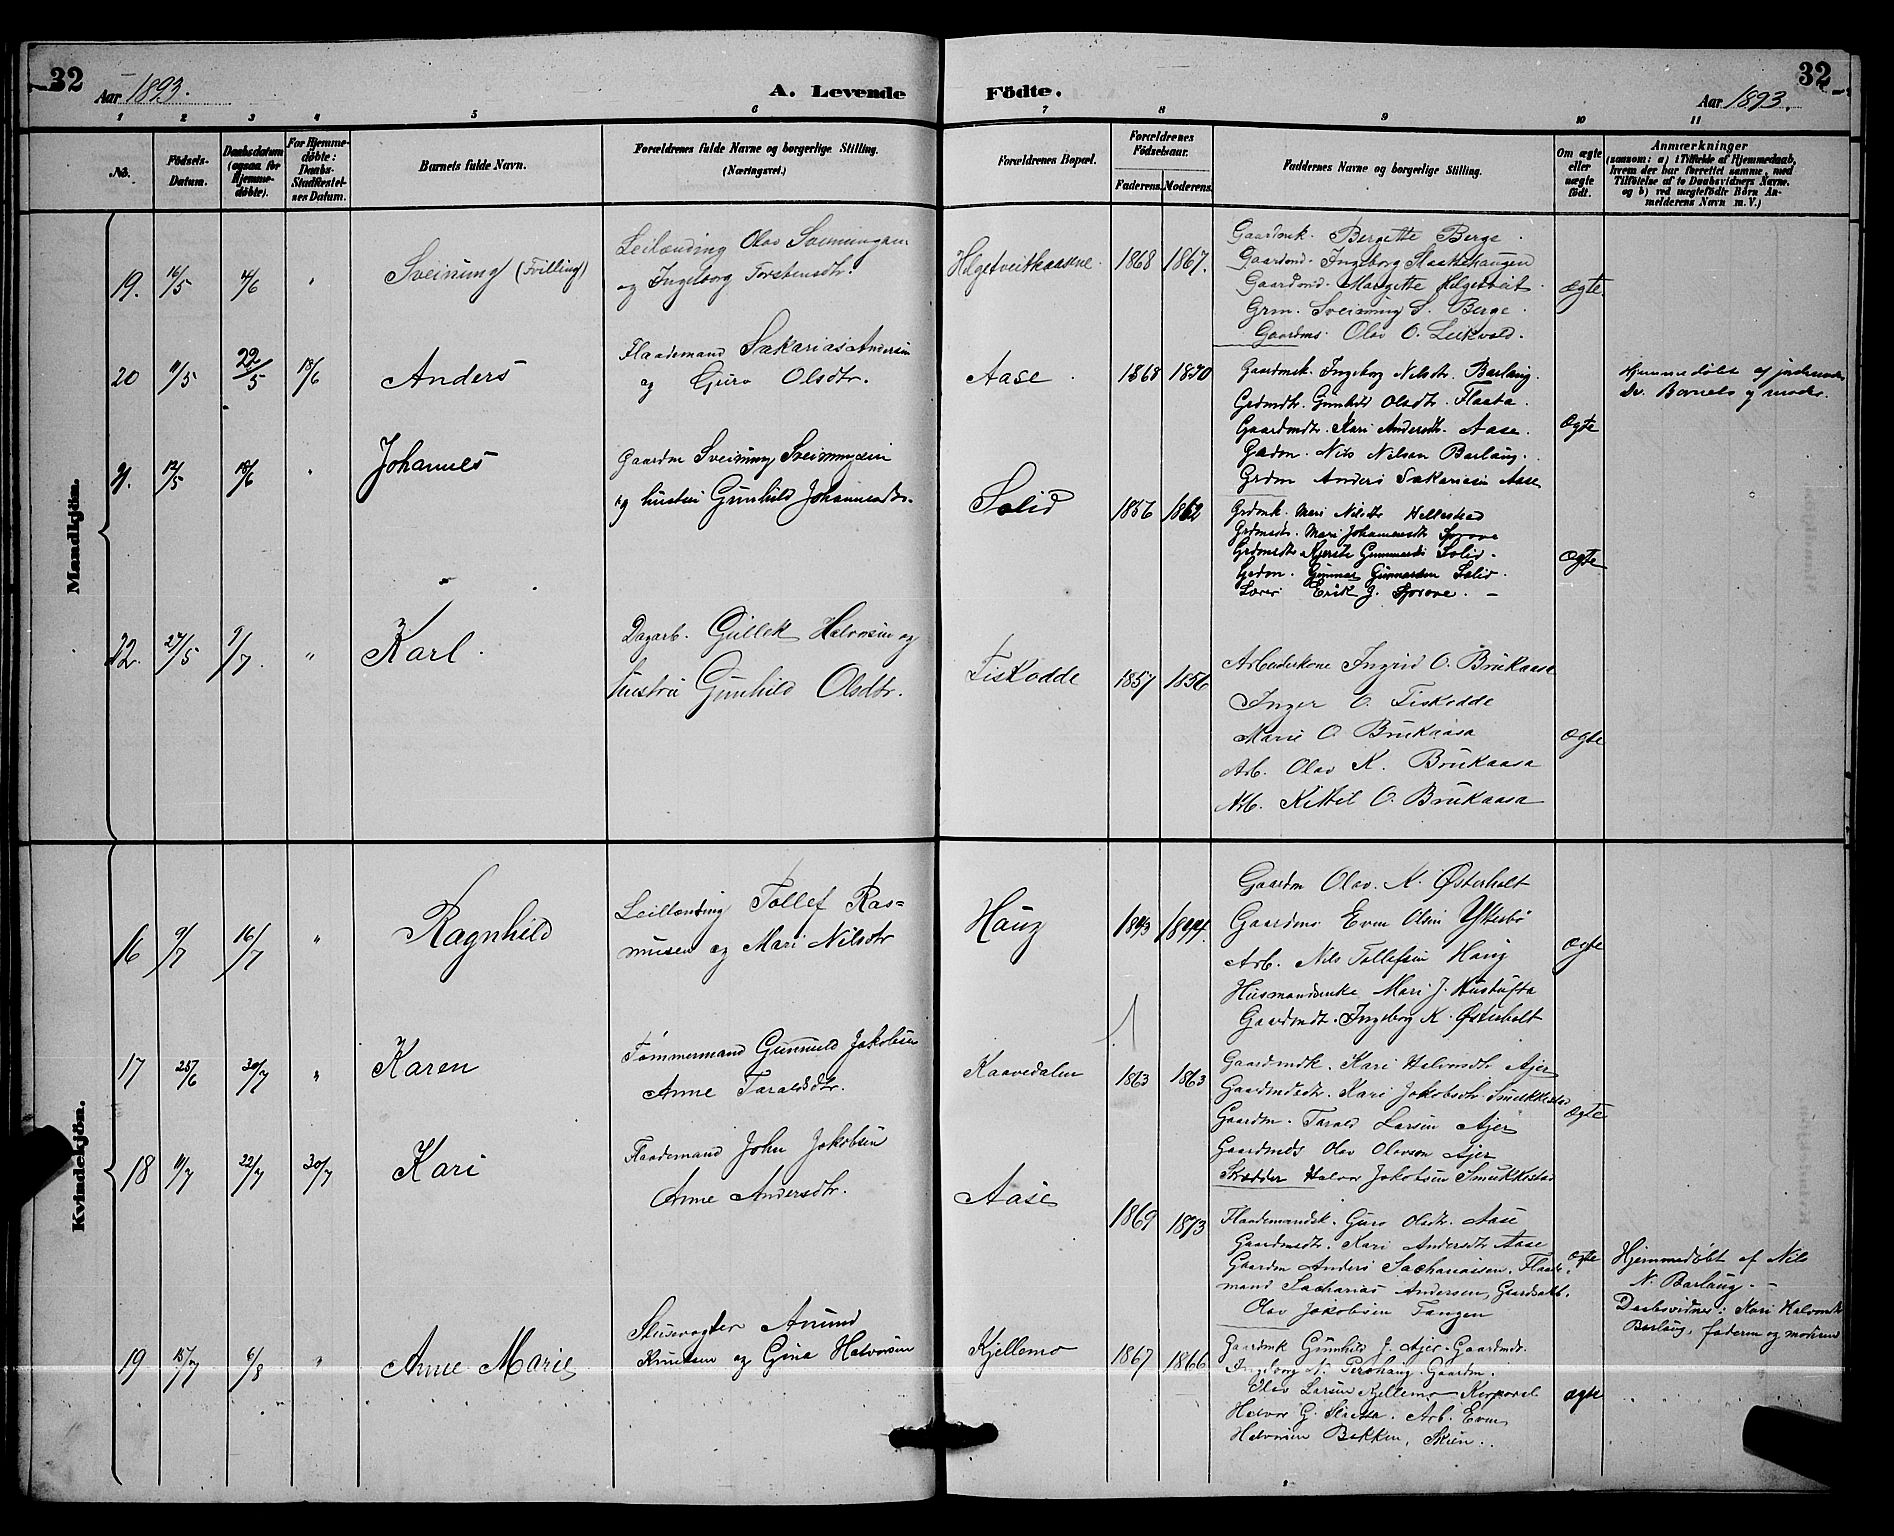 32
Aar 1893.
A. Levende
Födte.
Aar 1893.
32
1 2 3 4 5 6 7 8 9 10 11
No.
Födsels-
Datum.
Daabsdatum
(ogsaa for
Hjemme-
døbte).
For Hjemme-
døbte:
Daabs-
Stadfæstel-
ses Datum.
Barnets fulde Navn.
Forældrenes fulde Navne og borgerlige Stilling.
(Næringsvei.)
Forældrenes Bopæl.
Forældrenes
Födselsaar.
Faderens. Moderens.
Faddernes Navne og borgerlige Stilling.
Om ægte
eller
uægte
født.
Anmærkninger
(saasom: a) i Tilfælde af Hjemmedaab,
hvem der har forrettet samme, med
Tilføielse af to Daabsvidners Navne,
og b) ved uægtefødte Børn An-
melderens Navn m. V.)
Mandkjön.
19. 16/5 4/6 " Sveinung (Tvilling)
Leilænding Olav
og Ingeborg Torstensdtr.
Helgetveitkaasene 1868 1867.
Gaardmk. Bergette Berge.
Gaardmd. Ingeborg Slaattehaugen
Gaardmd. Margette Helgetveit.
Grm. Sveinung S. Berge.
Gaardms. Olav O. Leikvold.
ægte.
20 11/5 22/5 18/6 Anders
Flaademand Sakarias Andersen
og Guro Olsdtr.
Aase. 1868 1870
Gaardmk. Ingeborg Nilsdtr. Barlaug.
Grdmdtr. Gunhild Olsdtr. Flaata.
Gaardmdtr. Kari Andersdtr. Aase.
Grdm. Nils Nilsen Barlaug.
Grdm Anders Sakariasen Aase
ægte
Hjemmedøbt af jordemoder
Dv. Barnets og moder.
21. 12/5 18/6 " Johannes
Gaardm Sveinung Sveinungsen
og hustru Gunhild Johannesdtr.
Solid 1856 1862
Grdmk. Mari Nilsdtr Hellestad
Grdmdtr. Mari Johannesdtr Sprove
Grdmdtr Kjersti Gunnarsdtr Solid.
Grdm. Gunnar Gunnarsen Solid.
Lærer Erik J. Sprove.
ægte
22. 27/5 9/7. " Karl.
Dagarb. Gullek Halvorsen og
hustru Gunhild Olsdtr.
Fiskodde 1857 1856
Arbeiderkone Ingrid O. Brukaasa
Inger O. Fiskodde
Marie O. Brukaasa
Arb. Olav K. Brukaasa
Arb. Kittil O. Brukaasa
ægte
Kvindekjön.
16 9/7 16/7 " Ragnhild
Leilænding Tollef Ras=
musen og Mari Nilsdtr
Haug 1843 1844.
Gaardm Olav. K. Østerholt
Gaardms Even Olsen Ytterbø
Arb. Nils Tollefsen Haug
Husmandsenke Mari J. Hustufta
Gaardmdtr. Ingeborg K. Østerholt
ægte
17 25/6 30/7 " Karen
Tømmermand Gunnuld Jakobsen
Anne Taraldsdtr.
Kaavedalen 1863 1863
Gaardmdk. Kari Halvorsdtr Ajer
Gaardmdsdtr. Kari Jakobsdtr. Smukkestad
Gaardm. Tarald Larsen Ajer
Gaardmds Olav Olavson Ajer
Skrædder Halvor Jakobsen Smukkestad
ægte
18 11/7 22/7 30/7 Kari
Flaademand John Jakobsen
Anne Andersdtr.
Aase 1869 1873
Flaademandsk. Guro Olsdtr. Aase
Gaardmsdtr. Kari Andersdtr Aase
Gaardm Anders Sachariassen. Flaade-
mand Sacharias Andersen, Gaardsarb.
Olav Jakobsen Tangen
ægte
Hjemmedøbt af Nils
N. Barlaug. —
Daabsvidner: Kari Halvorsdtr
Barlaug, faderen og moderen
19 15/7 6/8 " Anne Marie
Slusevogter Amund
Knutsen og Gina Halvorsen
Kjellemo 1867 1866
Gaardmk Gunhild J. Ajer. Gaardmdt.
Ingeborg N. Gaardm.
Olav Larsen Kjellemo Korporal
Halvor G. Slaata. Arb. Even
Halvorsen Bakken, Skien.
ægte